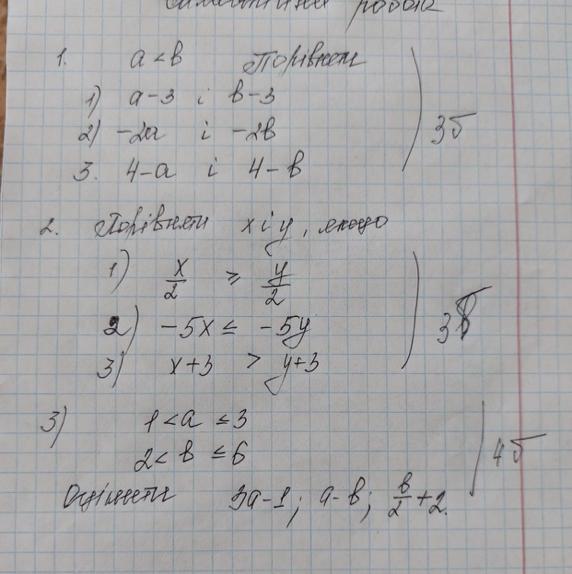 Самостійна робота
1. a < b Порівняти
1) a-3 і b-3
2) -2a і -2b
3. 4-a і 4-b
3б
2. Порівняти x і y, якщо
1) x/2 ≥ y/2
2) -5x ≤ -5y
3) x+3 > y+3
3б
3) 1 < a ≤ 3
2 < b ≤ 6
4б
Оцінити 3a-1; a-b; b/2+2.